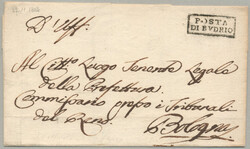 D'Uff.
POSTA
DI BVDRIO
Al Luogo Tenente Legale
della Prefettura
Commissario presso i Tribunali
del Reno
Bologna